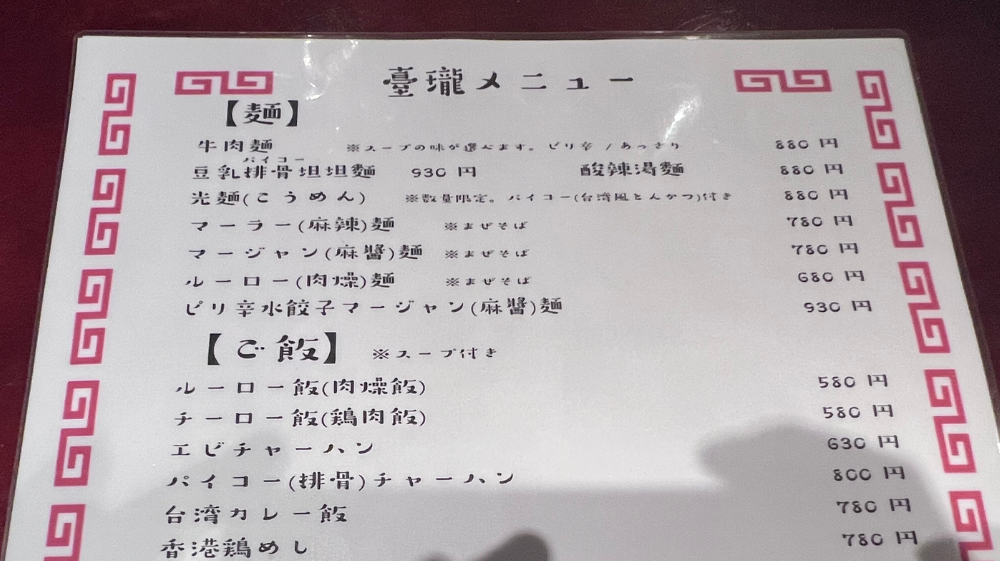 臺瓏メニュー
【麺】
牛肉麺 ※スープの味が選べます。ピリ辛/あっさり 880円
パイコー
豆乳排骨坦坦麺 930円 酸辣湯麺 880円
光麺(こうめん) ※数量限定。パイコー(台湾風とんかつ)付き 880円
マーラー(麻辣)麺 ※まぜそば 780円
マージャン(麻醬)麺 ※まぜそば 780円
ルーロー(肉燥)麺 ※まぜそば 680円
ピリ辛水餃子マージャン(麻醬)麺 930円
【ご飯】 ※スープ付き
ルーロー飯(肉燥飯) 580円
チーロー飯(鶏肉飯) 580円
エビチャーハン 630円
パイコー(排骨)チャーハン 800円
台湾カレー飯 780円
香港鶏めし 780円